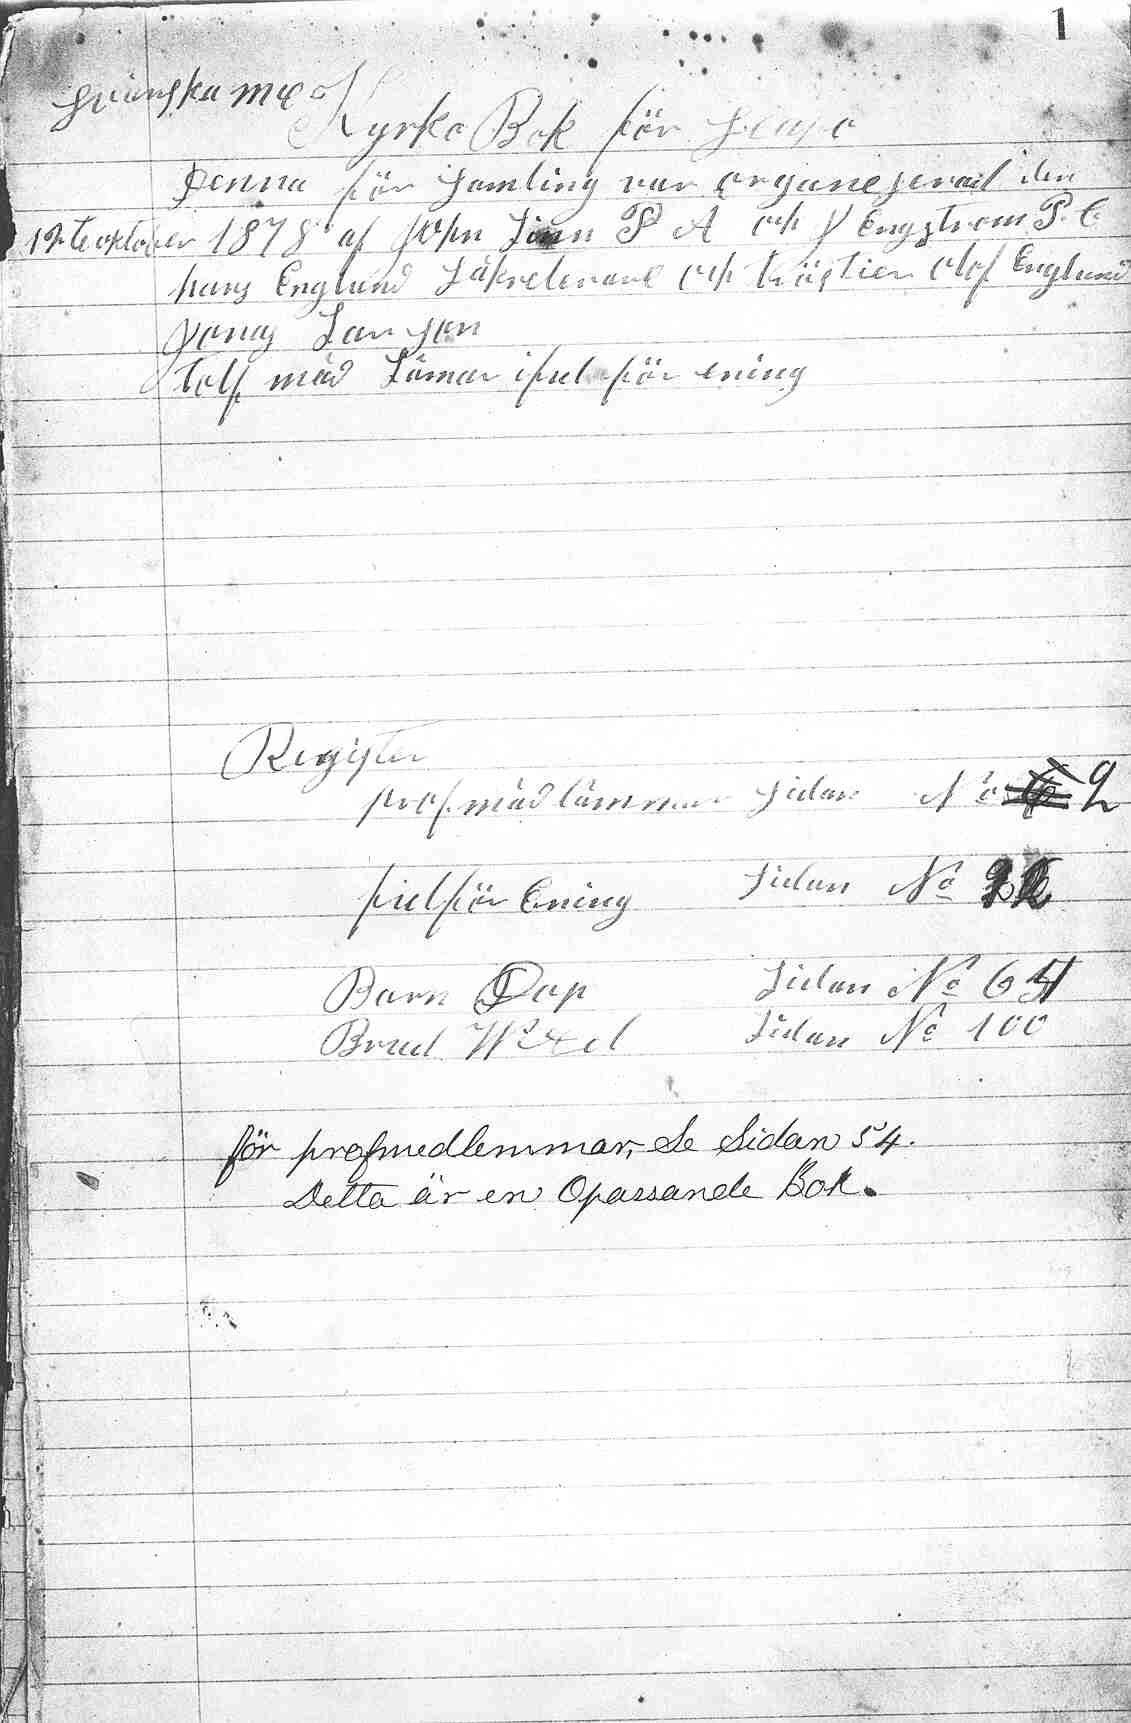 1
svenska me
Kyrko Bok för
Denna för samling var organeserad den
12te oktober 1878 af John Linn P A och J Engstrom P. C
hans Englund Säkreterare och träs tier olof Englund
Jonas Larson
tolf mäd Lämar i ful för ening
Register
prof mäd lämmar Sidan No 2
ful för Ening Sidan No
Barn Dop Sidan No
Brud Sidan No 100
för profmedlemmar, Se Sidan 54.
Detta är en Opassande Bok.